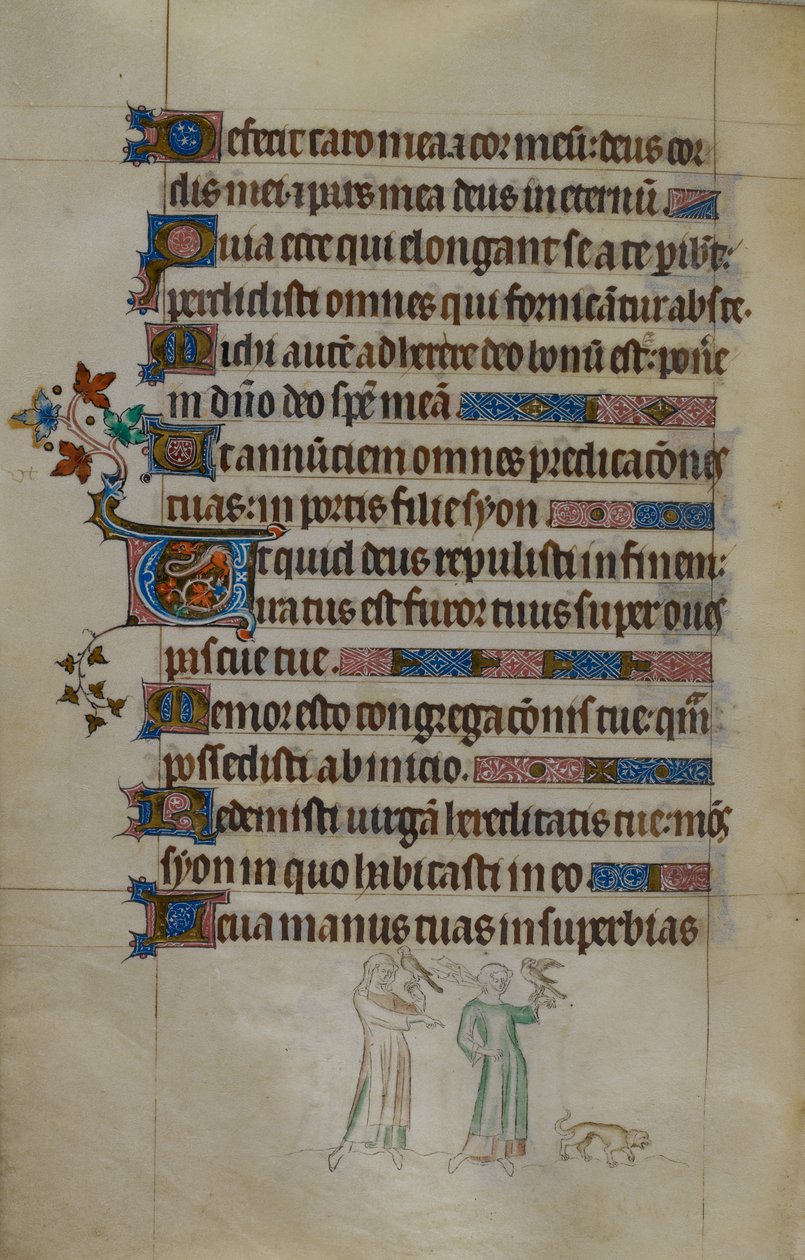 Defecit caro mea ⁊ cor meū: deus cor
dis mei· ⁊ pars mea deus in eternū
Quia ecce qui elongant se a te ꝑibt̄:
perdidisti omnes qui fornicātur abs te·
Michi autē adherere deo bonū est: pon̄e
in dn̄o deo spē meā
Ut annūciem omnes predicacōnes
tuas: in portis filie syon
Ut quid deus repulisti in finem:
iratus est furor tuus super oues
pascue tue.
Memor esto congregacōnis tue· qm̄
possedisti ab inicio.
Redemisti uirgā hereditatis tue: mōs
syon in quo habitasti in eo
Leua manus tuas in superbias